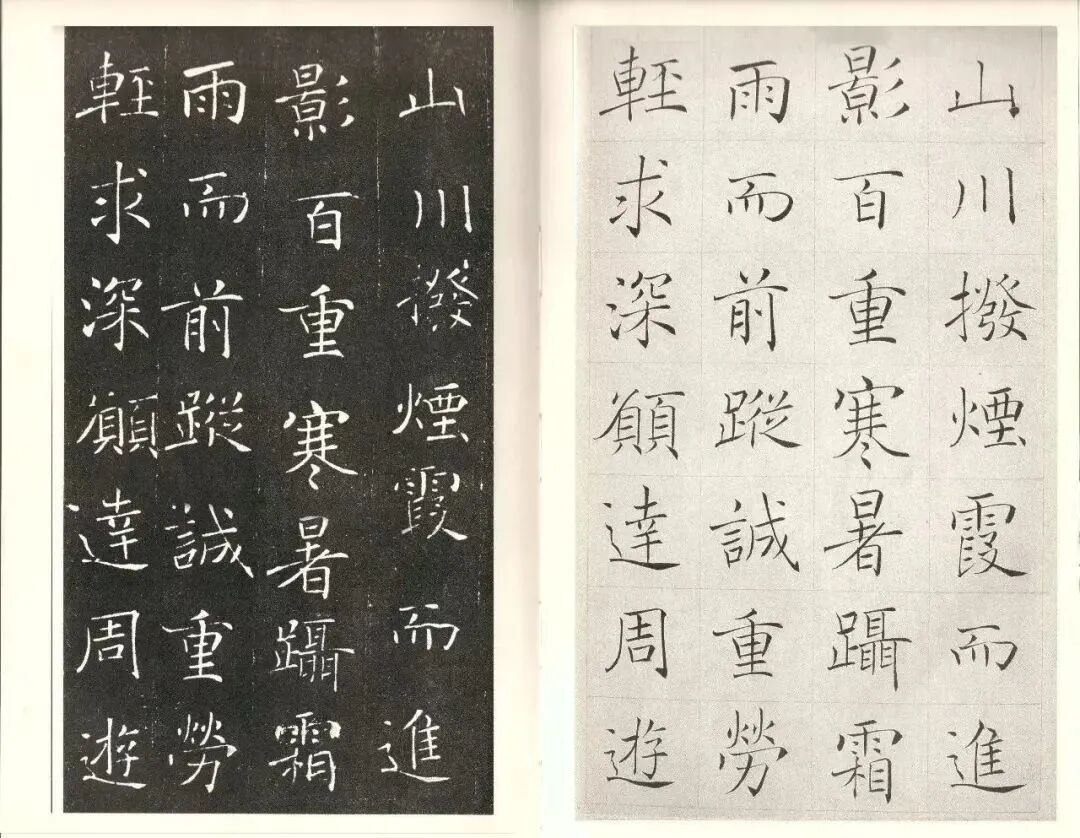 山川撥煙霞而進
影百重寒暑躡霜
雨而前蹤誠重勞
輕求深願達周遊
山川撥煙霞而進
影百重寒暑躡霜
雨而前蹤誠重勞
輕求深願達周遊